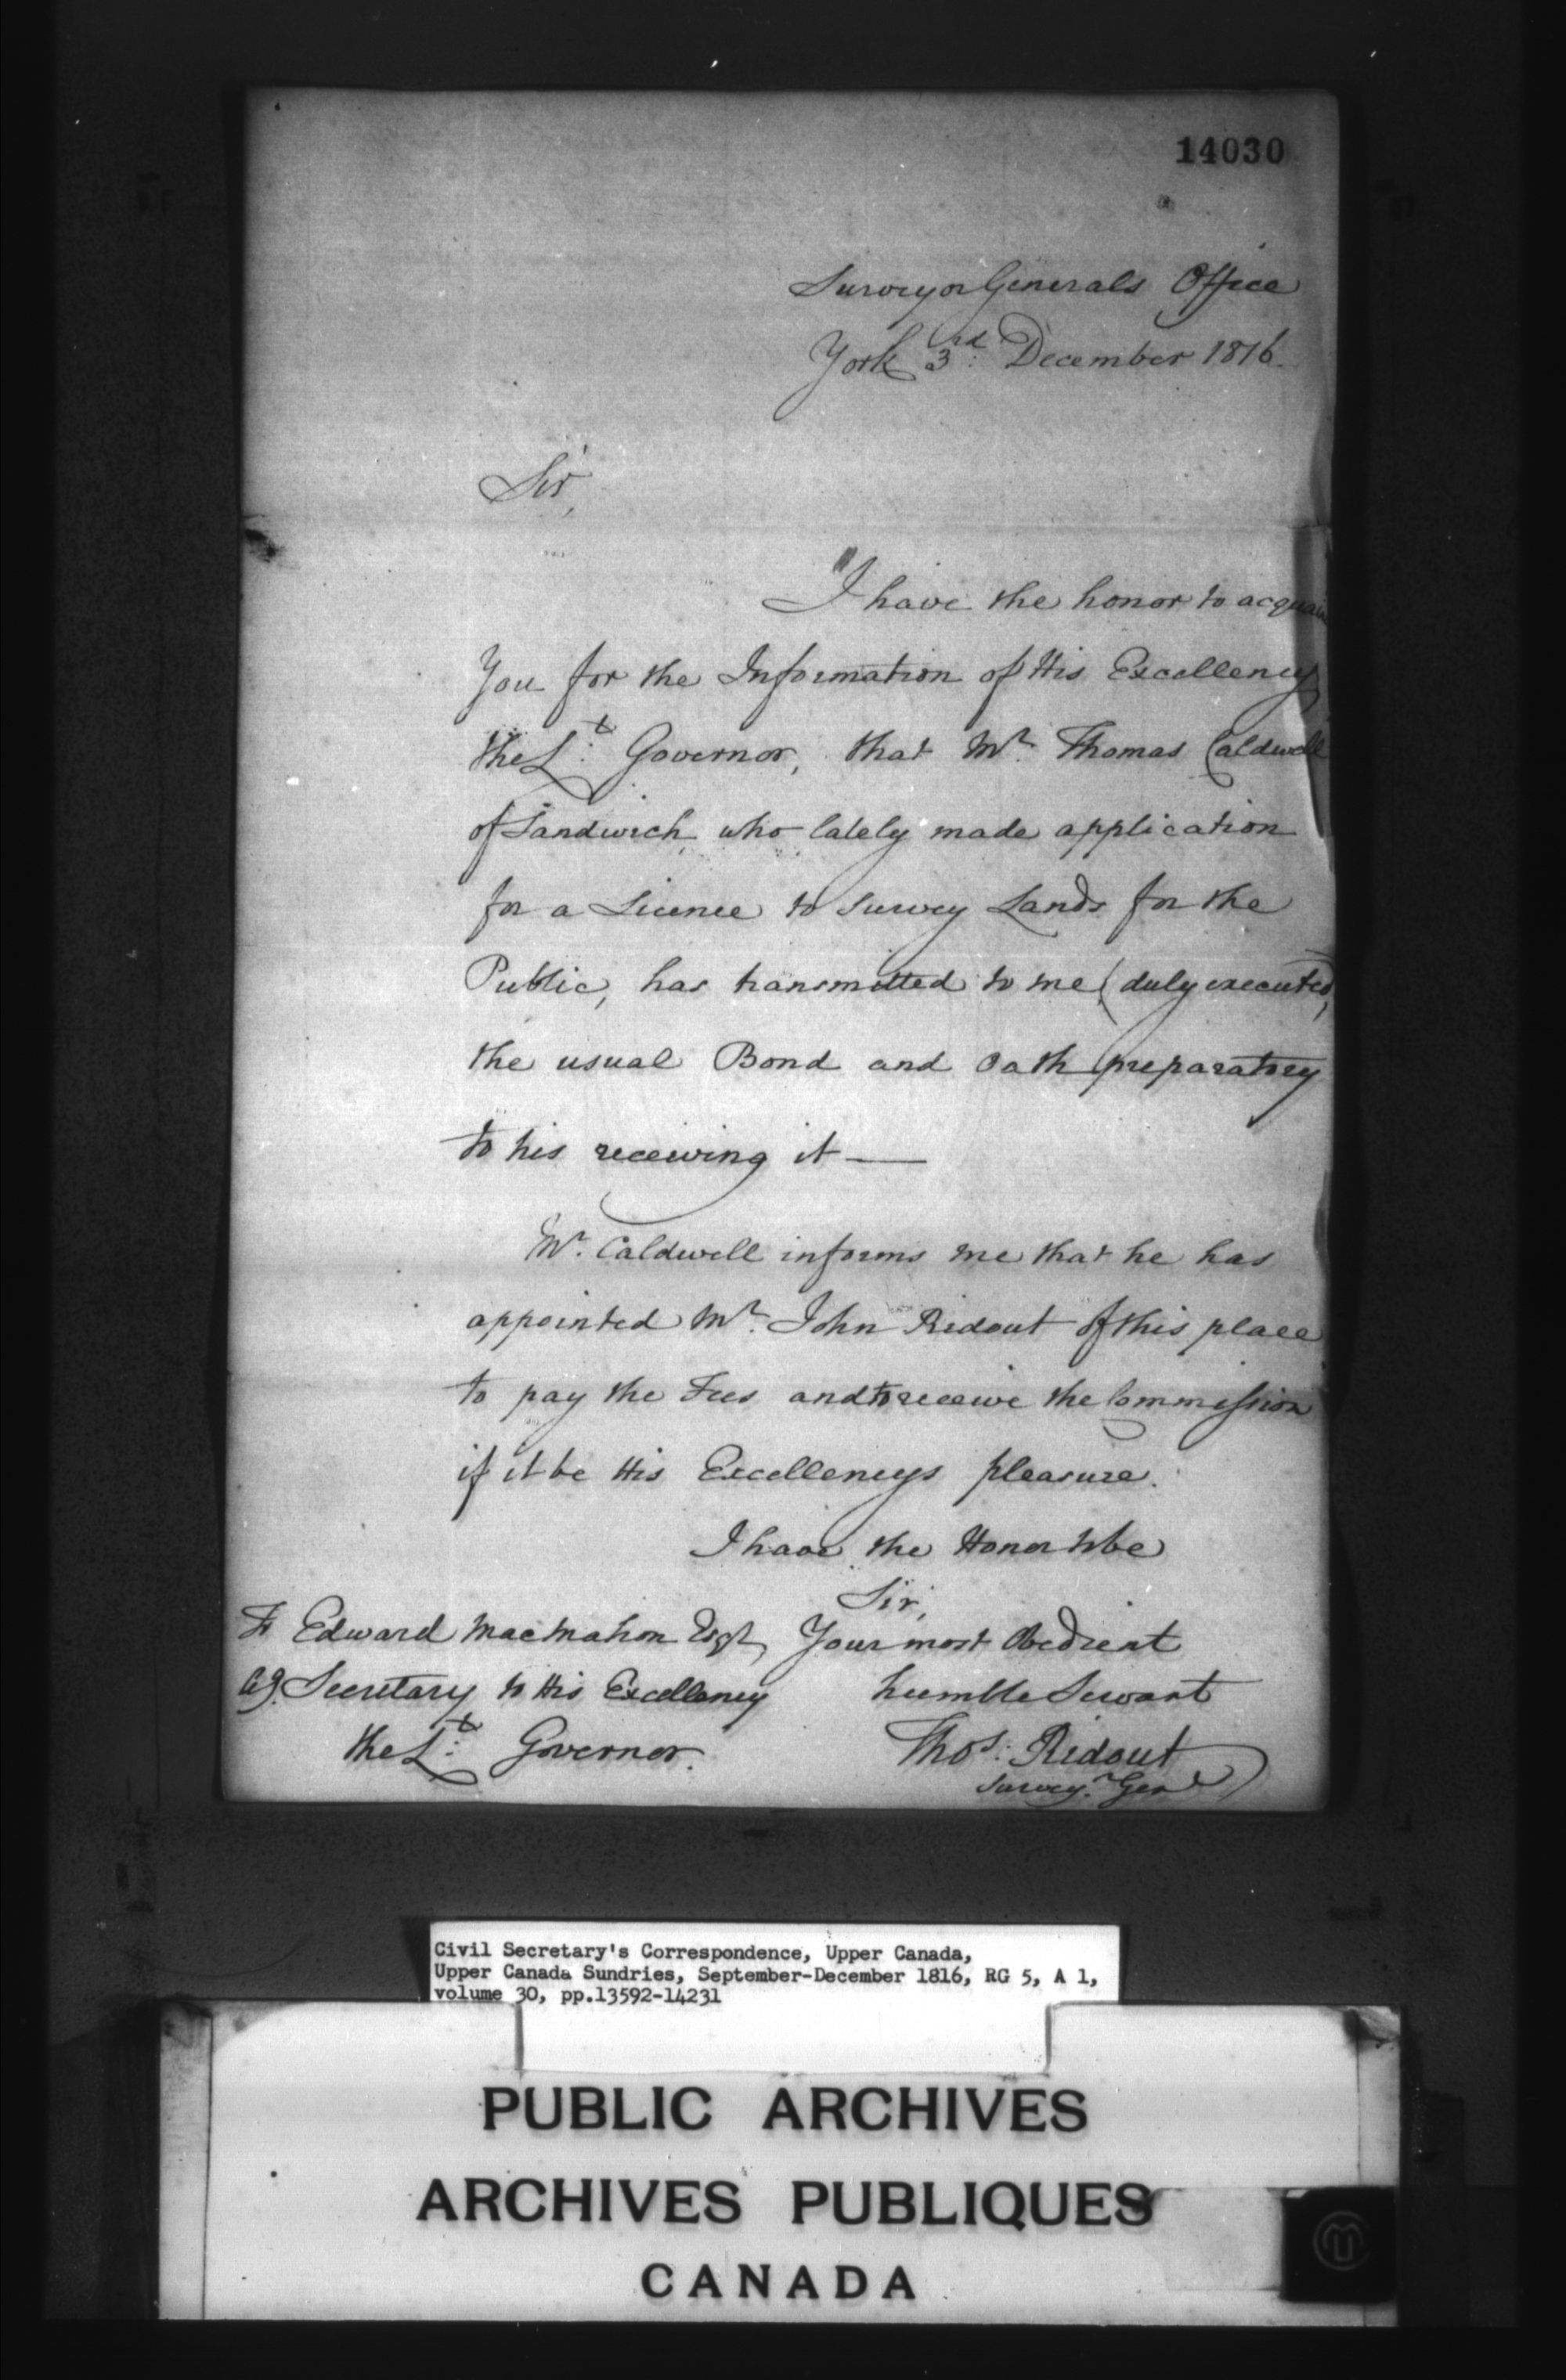 14030
Surveyor Generals Office
York 3rd December 1816.
Sir,
I have the honor to acquain
You for the Information of His Excellency
the Lt. Governor, that Mr. Thomas Caldwell
of Sandwich, who lately made application
for a Licence to survey Lands for the
Public, has transmitted to me (duly executed)
the usual Bond and Oath preparatory
to his receiving it —
Mr. Caldwell informs me that he has
appointed Mr. John Ridout of this place
to pay the Fees and to receive the Commission
if it be His Excellencys pleasure.
I have the Honor to be
Sir,
Your most Obedient
humble Servant
Thos. Ridout
Surveyr. Genl
To Edward MacMahon Esqr,
Ag. Secretary to His Excellency
the Lt. Governor.
Civil Secretary's Correspondence, Upper Canada,
Upper Canada Sundries, September-December 1816, RG 5, A 1,
volume 30, pp.13592-14231
PUBLIC ARCHIVES
ARCHIVES PUBLIQUES
CANADA